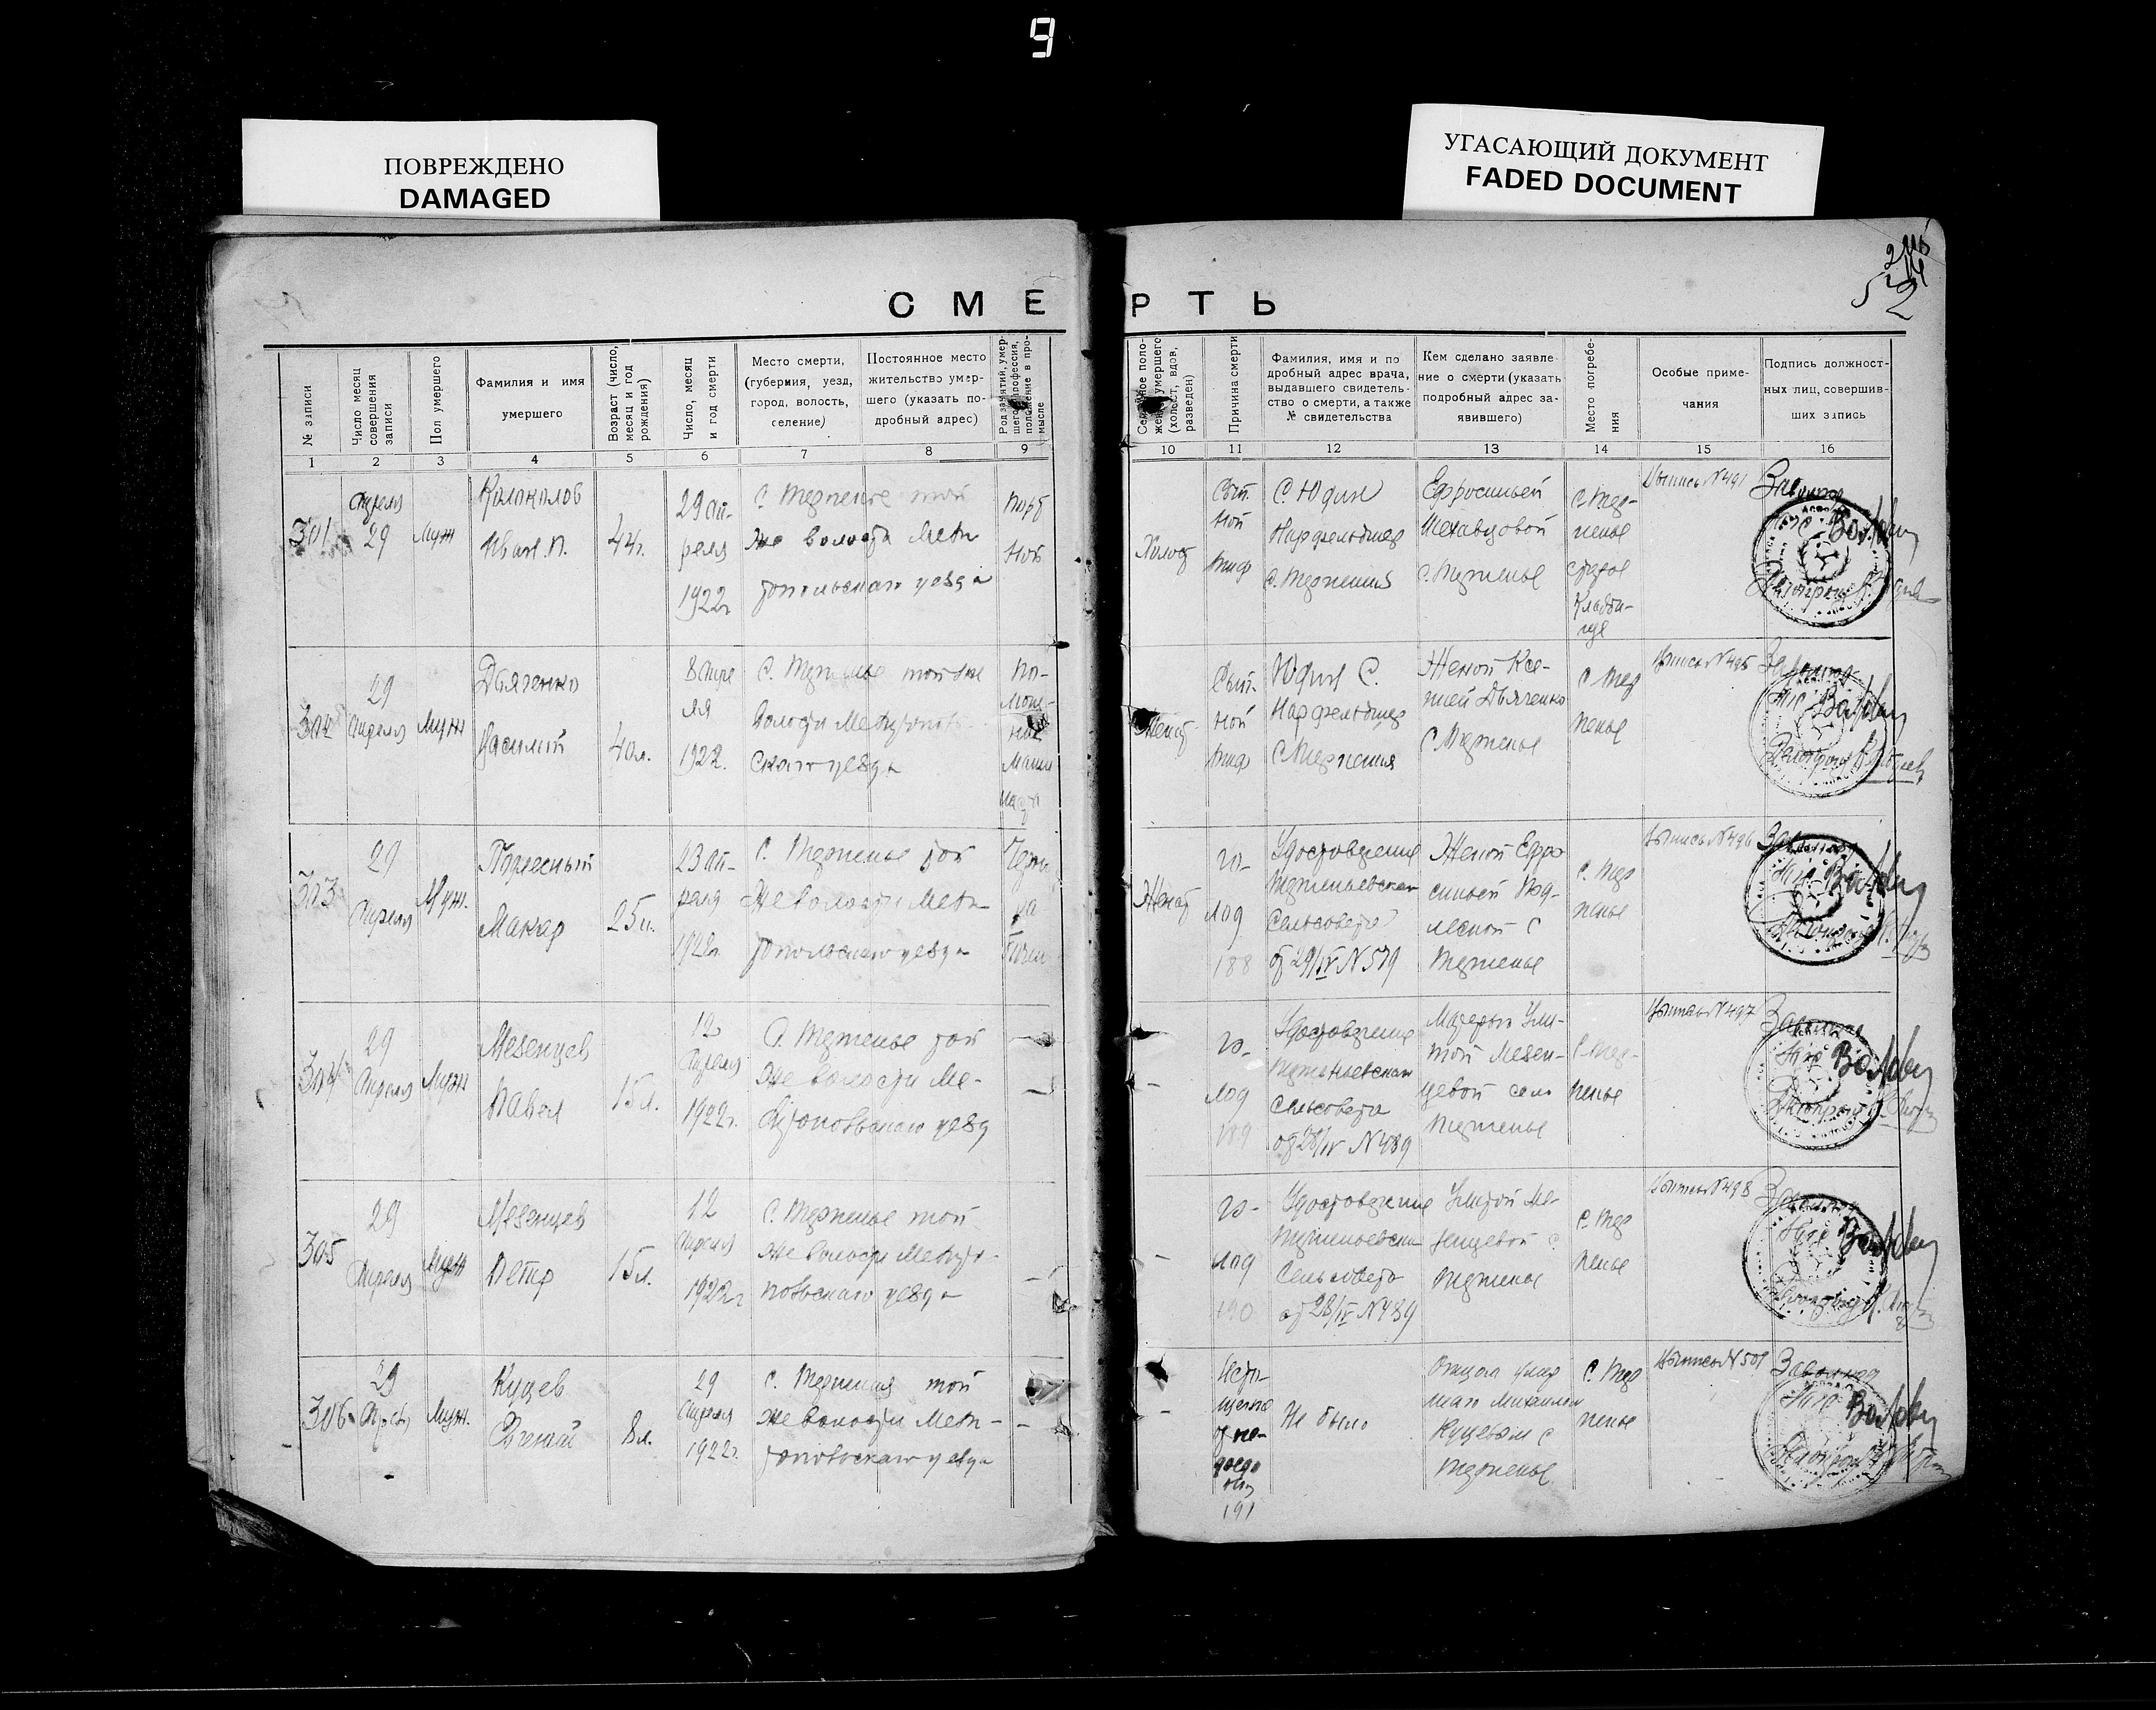 9
ПОВРЕЖДЕНО
DAMAGED
УГАСАЮЩИЙ ДОКУМЕНТ
FADED DOCUMENT
52
СМЕРТЬ
№ записи
Число месяц совершения записи
Пол умершего
Фамилия и имя
умершего
Возраст (число, месяц и год рождения)
Число, месяц и год смерти
Место смерти,
(губермия, уезд,
город, волость,
селение)
Постоянное место
жительство умер-
шего (указать по-
дробный адрес)
Род занятий, умер-
шего, профессия,
положение в про-
мысле
Семейное поло-
жение умершего
(холост, вдов,
разведен)
Причина смерти
Фамилия, имя и по
дробный адрес врача,
выдавшего свидетель-
ство о смерти, а также
№ свидетельства
Кем сделано заявле-
ние о смерти (указать
подробный адрес за-
явившего)
Место погребе-
ния
Особые приме-
чания
Подпись должност-
ных лиц, совершив-
ших запись
1 2 3 4 5 6 7 8 9 10 11 12 13 14 15 16
301
Апреля
29
Муж
Колоколов
Иван П.
44г.
29 ап-
реля
1922г
С. Терпение той
же волости Мели
топольскаго уезда
Порт
ной
Холост
Сып.
ной
тиф
С. Юдин
Нарфельдшер
С. Терпения
Ефросиньей
С. Терпенье
С Тер-
пенье
старое
Кладби-
ще
Выпись N 491
302
29
Апреля
Муж
Дьяченко
Василий
40л.
8 Апре
ля
1922.
С. Терпенье той же
Волости Мелитополь-
скаго уезда
По-
мощ-
ник
Маши
ниста
Женат
Сып-
ной
тиф
Юдин С.
Нарфельдшер
С Терпения
Женой Ксе-
нией Дьяченко
С Терпенье
С Тер
пенье
Выпись N 495
303
29
Апреля
Муж.
Макар
25л.
23 ап-
реля
1922г.
С. Терпенье той
же волости Мели-
топольскаго уезда
Женат
го-
лод
188
Удостоверение
Терпеньевскаго
Сельсовета
от 29/IV N 519
Женой Ефро
синьей Под-
лесной С
Терпенье
С. Тер
пенье
Выпись N 496
304
29
Апреля
Муж
Мезенцев
Павел
15л.
12
Апреля
1922г.
С. Терпенье той
же волости Ме-
литопольскаго уезд
го-
лод
189
Удостоверение
Терпеньевскаго
Сельсовета
от 28/IV N 489
Матерью Ули-
той Мезен-
цевой село
Терпенье
С Тер-
пенье
Выпись N 497
305
29
Апреля
Муж
Мезенцев
Петр
15л.
12
Апреля
1922г
С. Терпенье той
же Волости Мелито-
польскаго уезда
го-
лод
190
Удостоверение
Терпеньевска
Сельсовета
от 28/IV N 489
Улитой Ме-
зенцевой С
Терпенье
С. Тер
пенье
Выпись N 498
306
29
Апреля
Муж.
Куцев
Евгений
8л.
29
Апреля
1922г.
С. Терпения той
же волости Мели-
топольскаго уезда
Исто-
щение
от не-
доеда
ния
191
Не было
Отцом умер
шаго Михаилом
Куцевым С
Терпенье
С. Тер
пенье
Выпись N 501